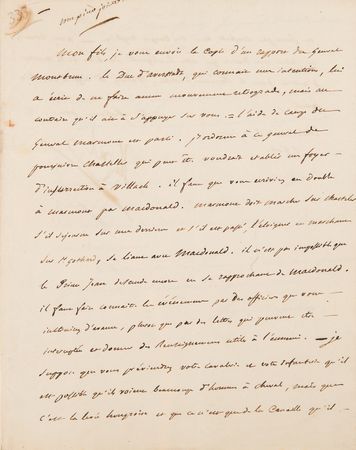 une pièce jointe
Mon fils, je vous envoie la copie d'un rapport du Général
Montbrun. le Duc d'auerstadt, qui connait mes intentions, lui
a écrit de ne faire aucun mouvement retrograde, mais au
contraire qu'il ait à s'appuyer sur vous. = l'aide de camp du
Général marmont est parti. j'ordonne à ce général de
poursuivre Chasteller qui peut être voudrait établir un foyer
d'insurrection à Villach. il faut que vous écriviez en double
à marmont par macdonald. marmont doit marcher sur Chasteller
s'il séjourne sur une division et s'il est passé, l'éloigner en marchant
sur St gothard, se liant avec Macdonald. il n'est pas impossible que
le Prince Jean descende encore en se rapprochant de Macdonald.
il faut faire connaitre les évènemens par des officiers que vous
instruirez d'avance, plutot que par des lettres qui peuvent être
interceptées et donner des renseignemens utiles à l'ennemi. — je
suppose que vous préviendrez votre cavalerie et votre infanterie qu'il
est possible qu'ils voient beaucoup d'hommes à cheval, mais que
c'est la levée hongroise et que ce n'est que de la Canaille qu'il —